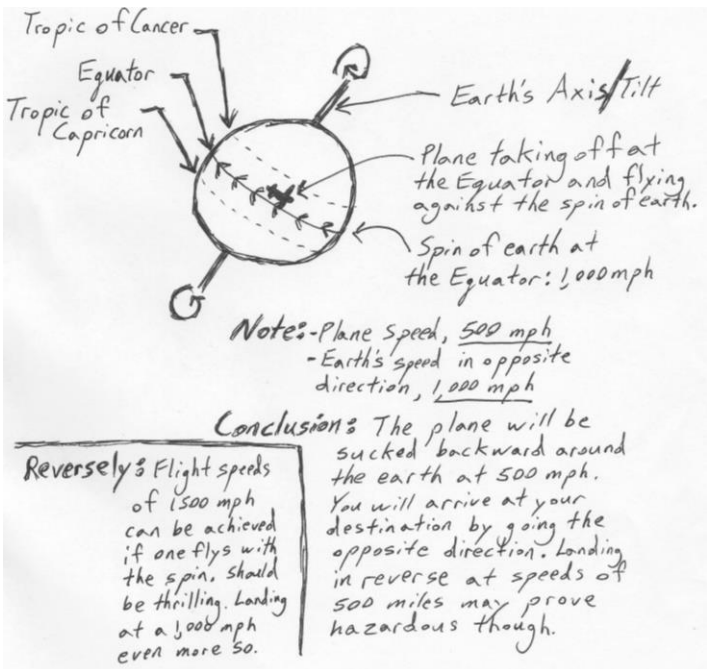 Tropic of Cancer
Equator
Tropic of
Capricorn
Earth's Axis/Tilt
Plane taking off at
the Equator and flying
against the spin of earth.
Spin of earth at
the Equator: 1,000 mph
Note:-Plane Speed, 500 mph
-Earth's speed in opposite
direction, 1,000 mph
Conclusion: The plane will be
sucked backward around
the earth at 500 mph.
You will arrive at your
destination by going the
opposite direction. Landing
in reverse at speeds of
500 miles may prove
hazardous though.
Reversely: Flight speeds
of 1500 mph
can be achieved
if one flys with
the spin. Should
be thrilling. Landing
at a 1,000 mph
even more so.